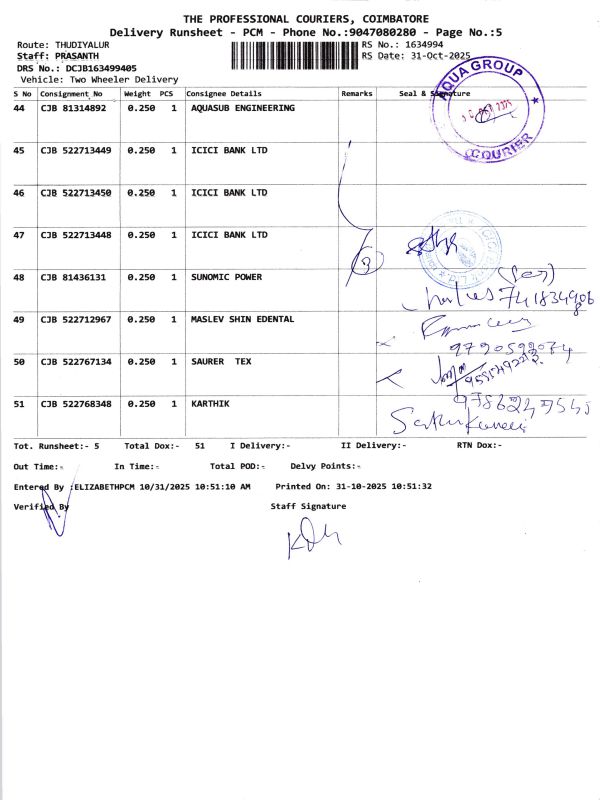 THE PROFESSIONAL COURIERS, COIMBATORE
Delivery Runsheet - PCM - Phone No.:9047080280 - Page No.:5
Route: THUDIYALUR RS No.: 1634994
Staff: PRASANTH RS Date: 31-Oct-2025
DRS No.: DCJB163499405
Vehicle: Two Wheeler Delivery
S No Consignment_No Weight PCS Consignee Details Remarks Seal & Signature
AQUA GROUP
COURIER
44 CJB 81314892 0.250 1 AQUASUB ENGINEERING
45 CJB 522713449 0.250 1 ICICI BANK LTD
46 CJB 522713450 0.250 1 ICICI BANK LTD
47 CJB 522713448 0.250 1 ICICI BANK LTD
3
48 CJB 81436131 0.250 1 SUNOMIC POWER
49 CJB 522712967 0.250 1 MASLEV SHIN EDENTAL
50 CJB 522767134 0.250 1 SAURER TEX
51 CJB 522768348 0.250 1 KARTHIK
Tot. Runsheet:- 5 Total Dox:- 51 I Delivery:- II Delivery:- RTN Dox:-
Out Time:- In Time:- Total POD:- Delvy Points:-
Entered By :ELIZABETHPCM 10/31/2025 10:51:10 AM Printed On: 31-10-2025 10:51:32
Verified By Staff Signature